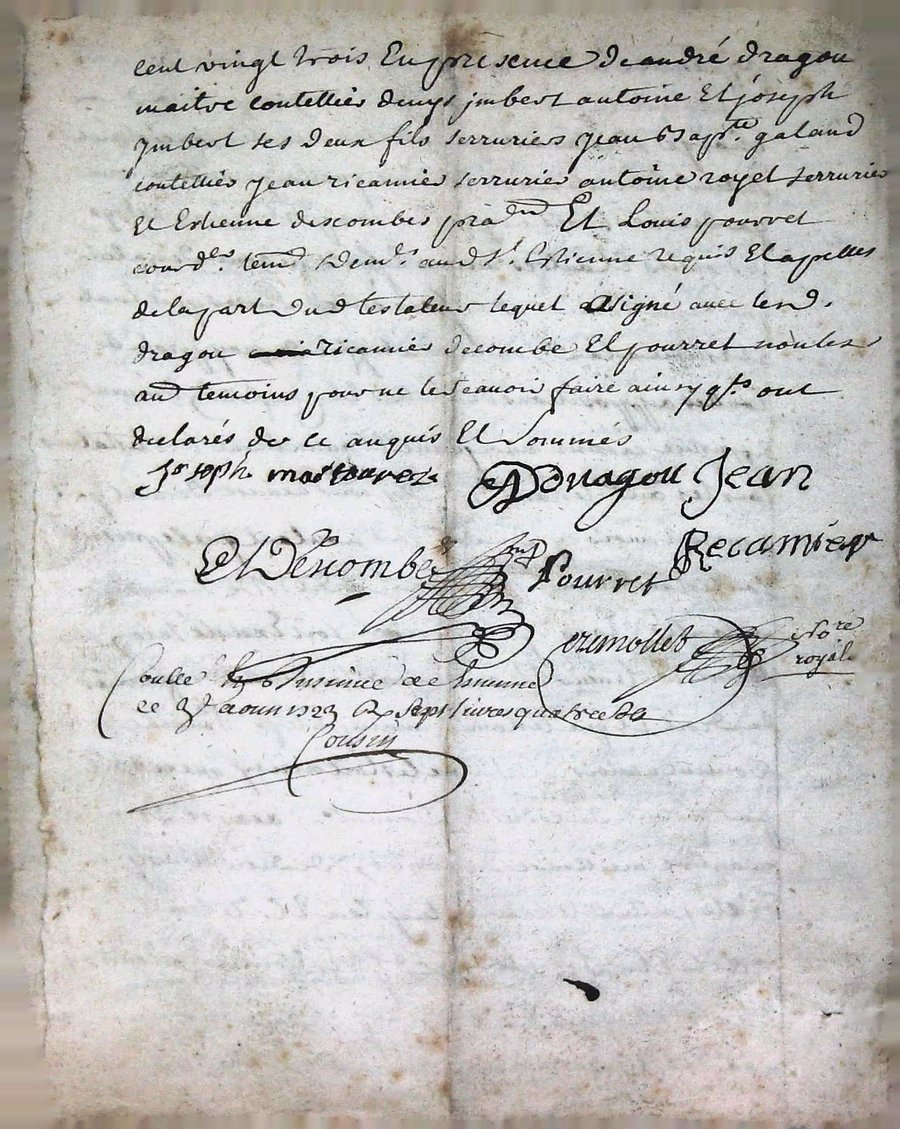 cent vingt trois En presence de andré dragou
maitre coutellier denys jmbert antoine Et joseph
jmbert ses deux fils serruriers jean bapte. galand
coutellier jean ricamier serrurier antoine royet serrurier
Et Estienne descombes pra[...] Et Louis pourret
courdr. tem. & dem. aud St. Estienne requis Et apelles
de la part dud testateur lequel a signé avec lesd.
dragou ricamier decombe Et pourret non les
aud temoins pour ne le scavoir faire ainsy qls. ont
declarés de ce anquis Et sommés
Joseph
A Dragou Jean
Et Descombe
Pourret
Recamier
Nore
royal
Coulle & Insinué a St Etienne
ce août 1723 sept livres quatre s
Cousin